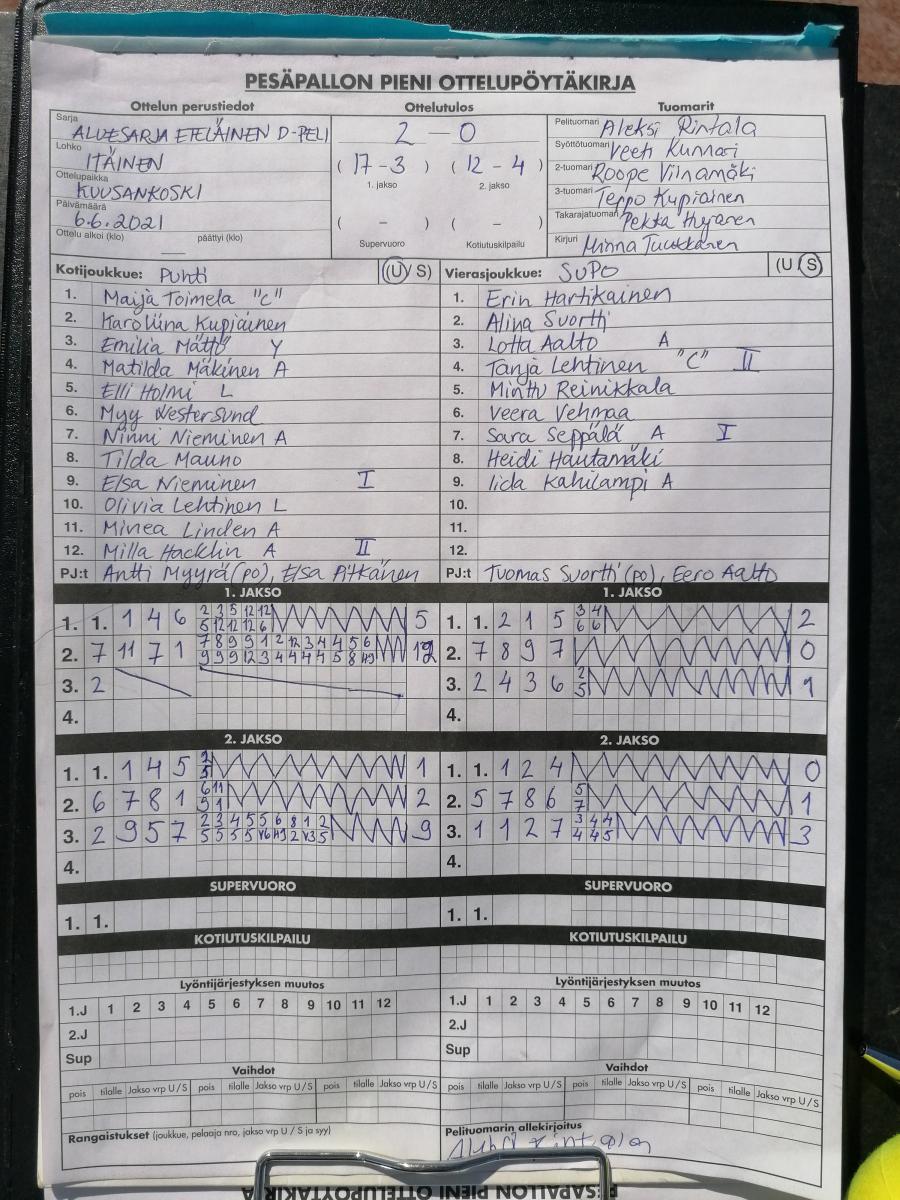 PESÄPALLON PIENI OTTELUPÖYTÄKIRJA
Ottelun perustiedot Ottelutulos Tuomarit
Sarja ALUESARJA ETELÄINEN D-PELI
Lohko ITÄINEN
Ottelupaikka KUUSANKOSKI
Päivämäärä 6.6.2021
Ottelu alkoi (klo) päättyi (klo)
2 - 0
( 17 - 3 ) ( 12 - 4 )
1. jakso 2. jakso
( - ) ( - )
Supervuoro Kotiutuskilpailu
Pelituomari Aleksi Rintala
Syöttötuomari Veeti Kunnari
2-tuomari Roope Viinamäki
3-tuomari Teppo Kupiainen
Takarajatuomari Pekka
Kirjuri Minna Tuukkanen
Kotijoukkue: Puhti (U / S)
1. Maija Toimela "C"
2. Karoliina Kupiainen
3. Emilia Mättö Y
4. Matilda Mäkinen A
5. Elli Holmi L
6. Myy Westersund
7. Ninni Nieminen A
8. Tilda Mauno
9. Elsa Nieminen I
10. Olivia Lehtinen L
11. Minea Linden A
12. Milla Hacklin A II
PJ:t Antti Myyrä (po), Elsa Pitkänen
Vierasjoukkue: SuPo (U / S)
1. Erin Hartikainen
2. Alina Suortti
3. Lotta Aalto A
4. Tanja Lehtinen "C" II
5. Minttu Reinikkala
6. Veera Vehmaa
7. Sara Seppälä A I
8. Heidi Hautamäki
9. Iida Kahilampi A
10.
11.
12.
PJ:t Tuomas Suortti (po), Eero Aalto
1. JAKSO
1. 1. 1 4 6 2 3 5 12 12 5
5 12 12 12 6
2. 7 11 7 1 7 8 9 9 1 2 12 3 4 4 5 6 12
9 9 9 12 3 4 4 4 4 5 8
3. 2
4.
1. JAKSO
1. 1. 2 1 5 3 4 2
6 6
2. 7 8 9 7 0
3. 2 4 3 6 2 1
5
4.
2. JAKSO
1. 1. 1 4 5 2 1
5
2. 6 7 8 1 6 11 2
9 1
3. 2 9 5 7 2 3 4 5 5 6 8 1 2 9
5 5 5 5 V6 H9 2 V3 5
4.
2. JAKSO
1. 1. 1 2 4 0
2. 5 7 8 6 5 1
7
3. 1 1 2 7 3 4 4 3
4 4 5
4.
SUPERVUORO SUPERVUORO
1. 1. 1. 1.
KOTIUTUSKILPAILU KOTIUTUSKILPAILU
Lyöntijärjestyksen muutos Lyöntijärjestyksen muutos
1.J 1 2 3 4 5 6 7 8 9 10 11 12 1.J 1 2 3 4 5 6 7 8 9 10 11 12
2.J 2.J
Sup Sup
Vaihdot Vaihdot
pois tilalle Jakso vrp U / S pois tilalle Jakso vrp U / S pois tilalle Jakso vrp U / S
pois tilalle Jakso vrp U / S pois tilalle Jakso vrp U / S pois tilalle Jakso vrp U / S
Rangaistukset (joukkue, pelaaja nro, jakso vrp U / S ja syy)
Pelituomarin allekirjoitus
PESÄPALLON PIENI OTTELUPÖYTÄKIRJA